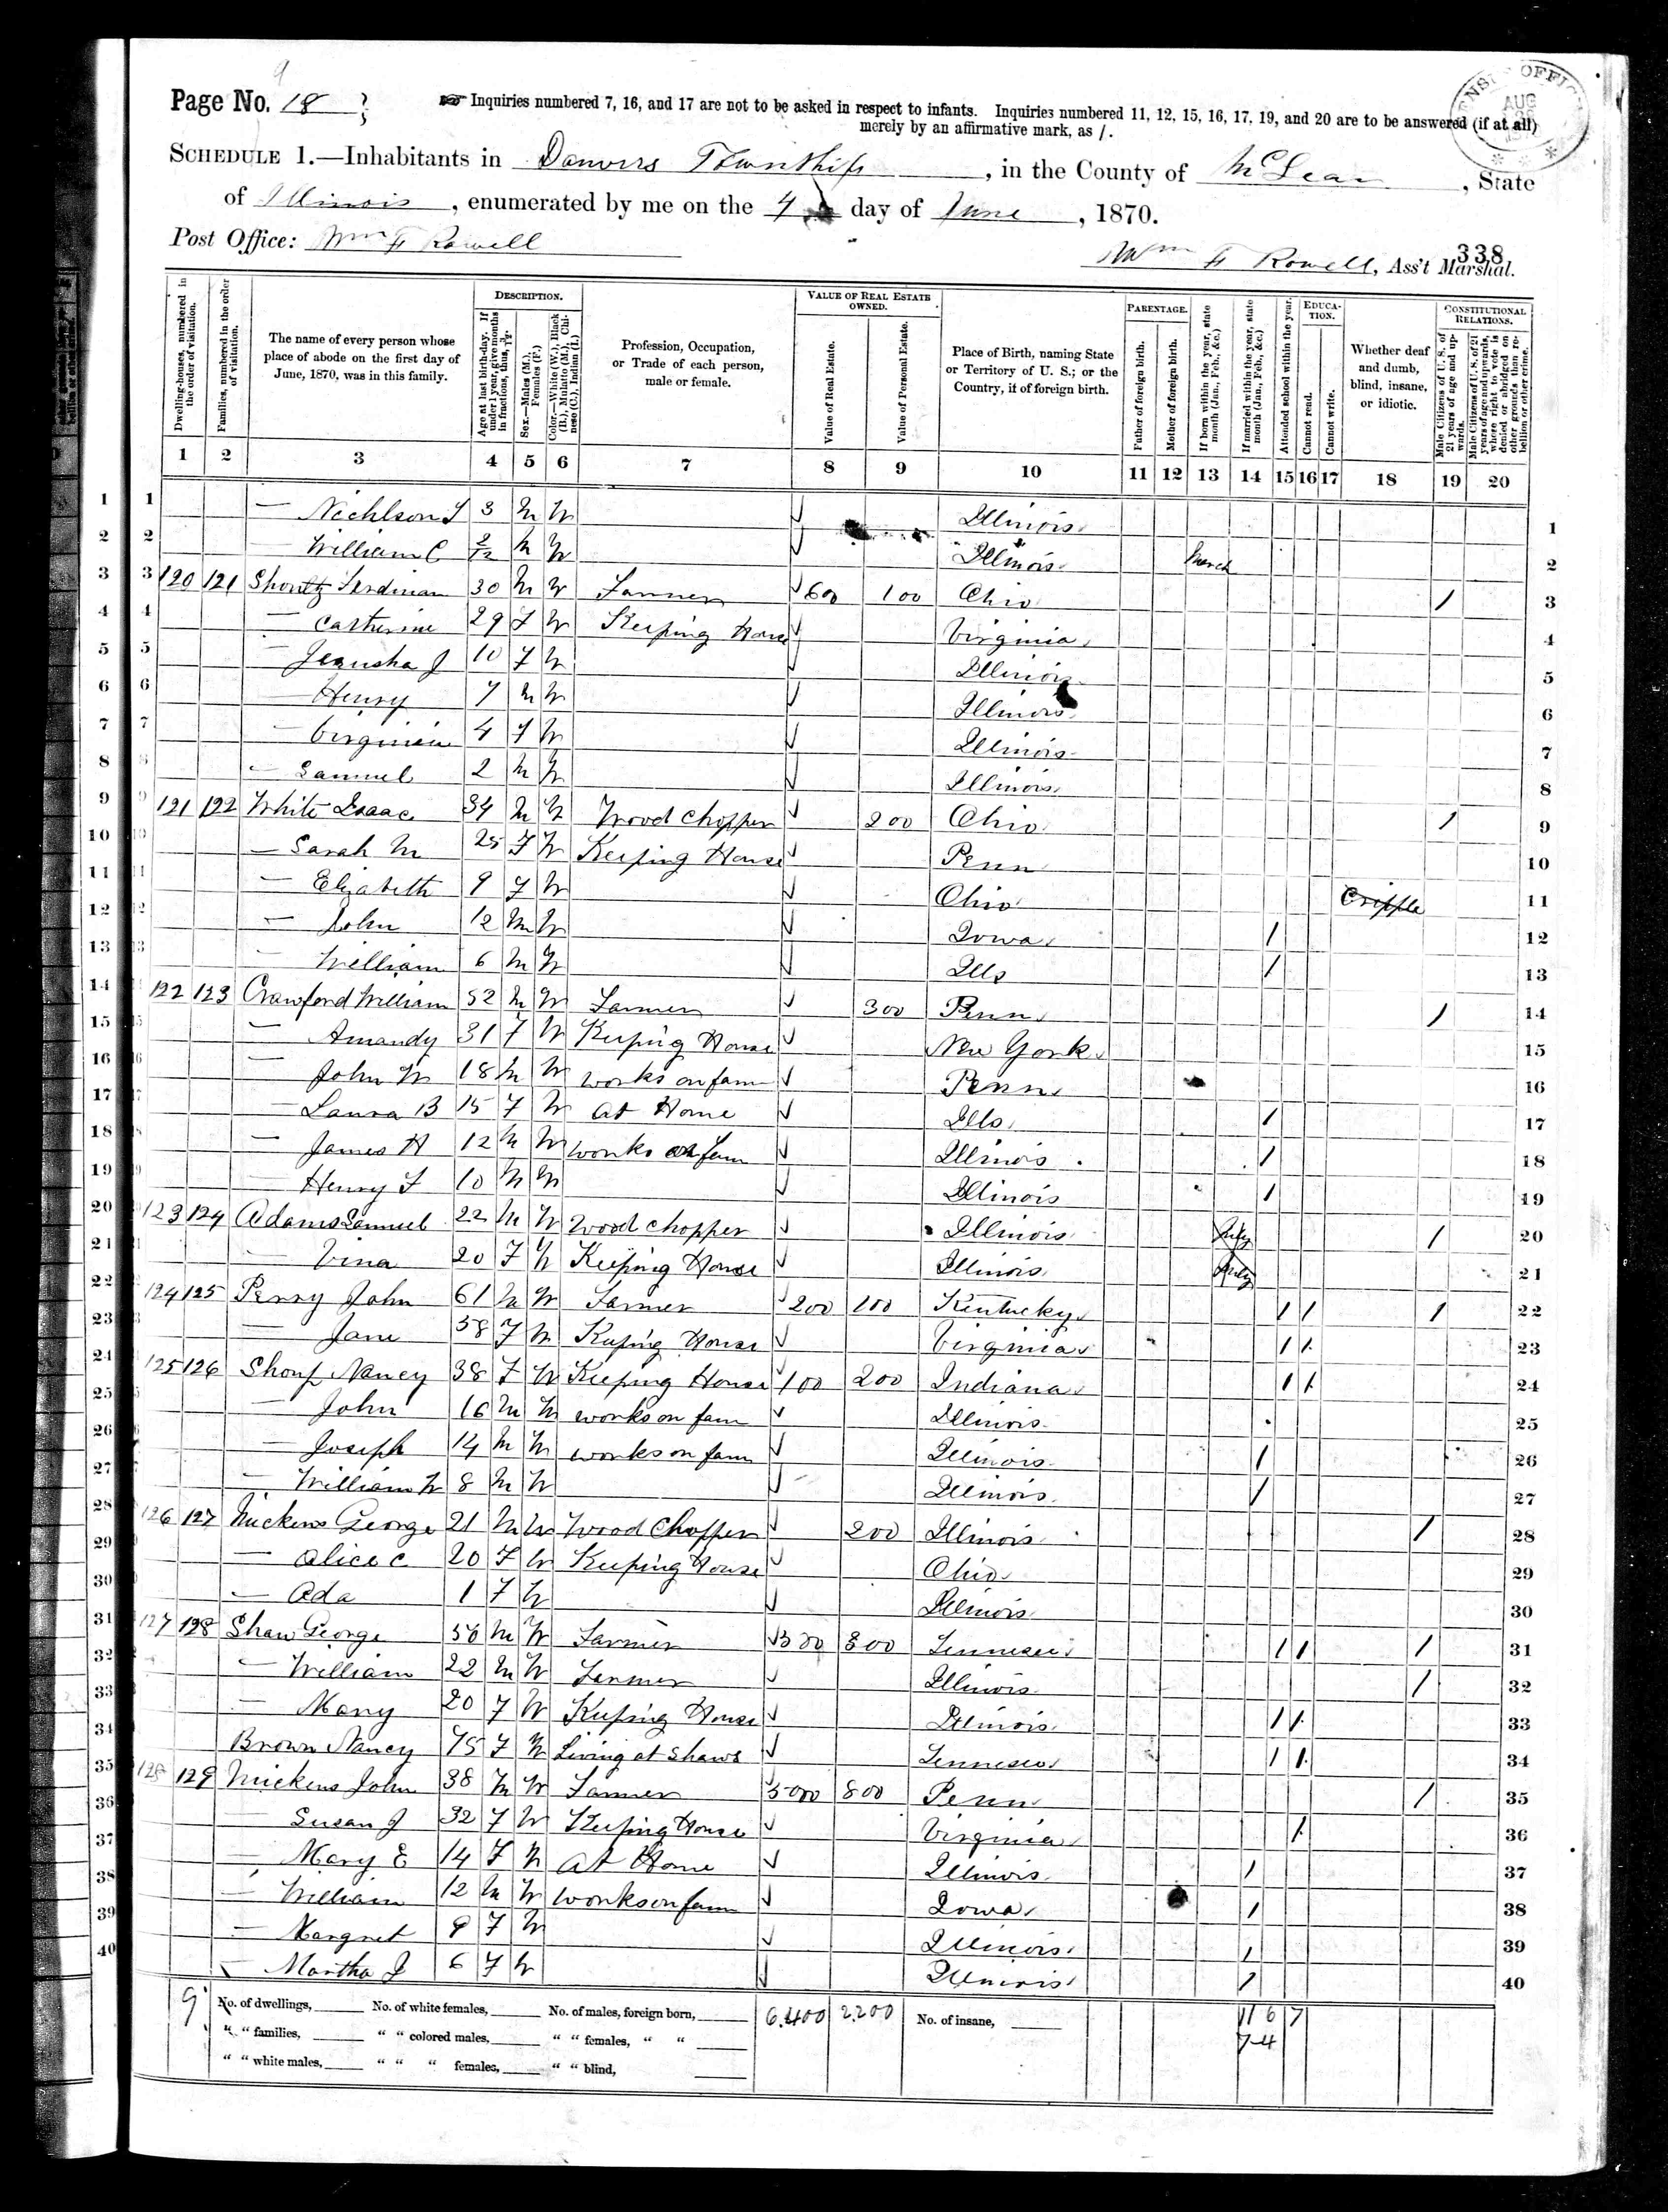 9
Page No. 18 ?
☞ Inquiries numbered 7, 16, and 17 are not to be asked in respect to infants. Inquiries numbered 11, 12, 15, 16, 17, 19, and 20 are to be answered (if at all)
merely by an affirmative mark, as /.
CENSUS OFFICE AUG
SCHEDULE 1.—Inhabitants in Danvers Township, in the County of McLean, State
of Illinois, enumerated by me on the 4 day of June, 1870.
Post Office: Wm F Rowell
338
Wm F Rowell, Ass't Marshal.
Dwelling-houses, numbered in the order of visitation.
Families, numbered in the order of visitation.
The name of every person whose place of abode on the first day of June, 1870, was in this family.
DESCRIPTION.
Age at last birth-day. If under 1 year, give months in fractions, thus, 3/12
Sex.—Males (M.), Females (F.)
Color.—White (W.), Black (B.), Mulatto (M.), Chinese (C.), Indian (I.)
Profession, Occupation, or Trade of each person, male or female.
VALUE OF REAL ESTATE OWNED.
Value of Real Estate.
Value of Personal Estate.
Place of Birth, naming State or Territory of U. S.; or the Country, if of foreign birth.
PARENTAGE.
Father of foreign birth.
Mother of foreign birth.
If born within the year, state month (Jan., Feb., &c.)
If married within the year, state month (Jan., Feb., &c.)
Attended school within the year.
EDUCATION.
Cannot read.
Cannot write.
Whether deaf and dumb, blind, insane, or idiotic.
CONSTITUTIONAL RELATIONS.
Male Citizens of U. S. of 21 years of age and upwards.
Male Citizens of U. S. of 21 years of age and upwards, where right to vote is denied or abridged on other grounds than rebellion or other crime.
1 2 3 4 5 6 7 8 9 10 11 12 13 14 15 16 17 18 19 20
1 1 — Nichlson 3 M W ✓ Illinois 1
2 2 — William C 2/12 M W ✓ Illinois March 2
3 3 120 121 Shontz Ferdinan 30 M W Farmer ✓ 600 100 Ohio / 3
4 4 — Catherine 29 F W Keeping House ✓ Virginia 4
5 5 — Jerusha J 10 F W ✓ Illinois 5
6 6 — Henry 7 M W ✓ Illinois 6
7 7 — Virginia 4 F W ✓ Illinois 7
8 8 — Samuel 2 M W ✓ Illinois 8
9 9 121 122 White Isaac 34 M W Wood Chopper ✓ 200 Ohio / 9
10 10 — Sarah M 25 F W Keeping House ✓ Penn 10
11 11 — Elizabeth 9 F W ✓ Ohio Cripple 11
12 12 — John 12 M W ✓ Iowa / 12
13 13 — William 6 M W ✓ Ills / 13
14 122 123 Crawford William 52 M W Farmer ✓ 300 Penn / 14
15 15 — Amandy 31 F W Keeping House ✓ New York 15
16 16 — John W 18 M W works on farm ✓ Penn 16
17 — Laura B 15 F W At Home ✓ Ills / 17
18 — James H 12 M W works on farm ✓ Illinois / 18
19 — Henry F 10 M W ✓ Illinois / 19
20 123 124 Adams Samuel 22 M W Wood chopper ✓ Illinois July / 20
21 — Vina 20 F W Keeping House ✓ Illinois July 21
22 124 125 Perry John 61 M W Farmer ✓ 200 100 Kentucky / / / 22
23 — Jane 58 F W Keeping House ✓ Virginia / / 23
24 125 126 Shoup Nancy 38 F W Keeping House ✓ 100 200 Indiana / / 24
25 — John 16 M W works on farm ✓ Illinois 25
26 — Joseph 14 M W works on farm ✓ Illinois / 26
27 — William W 8 M W ✓ Illinois / 27
28 126 127 George 21 M W Wood Chopper ✓ 200 Illinois / 28
29 — Alice C 20 F W Keeping House ✓ Ohio 29
30 — Ada 1 F W ✓ Illinois 30
31 127 128 Shaw George 56 M W Farmer ✓ Tennessee / / / 31
32 — William 22 M W Farmer ✓ Illinois / 32
33 — Mary 20 F W Keeping House ✓ Illinois / / 33
34 Brown Nancy 75 F W Living at Shaws ✓ Tennessee / / 34
35 128 129 John 38 M W Farmer ✓ 5000 800 Penn / 35
36 — Susan J 32 F W Keeping House ✓ Virginia / 36
37 — Mary E 14 F W At Home ✓ Illinois / 37
38 — William 12 M W Works on farm ✓ Iowa / 38
39 — Margret 9 F W ✓ Illinois / 39
40 — Martha J 6 F W ✓ Illinois / 40
9 No. of dwellings, No. of white females, No. of males, foreign born, 6.400 2.200 No. of insane, 11 6 7
" " families, " " colored males, " " females, " " 7-4
" " white males, " " " females, " " blind,